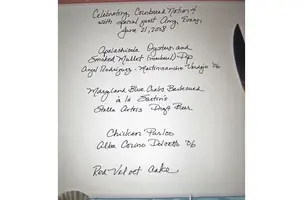 Celebrating Cornbread Nation 4
with special guest Amy Evans
June 21, 2008
Apalachicola Oysters and
Smoked Mullet Dip
Angel Rodriguez - Martinsancho Verdejo '06
Maryland Blue Crabs Barbecued
à la Sartin's
Stella Artois Draft Beer
Chicken Purloo
Alba Dolcetto '06
Red Velvet Cake